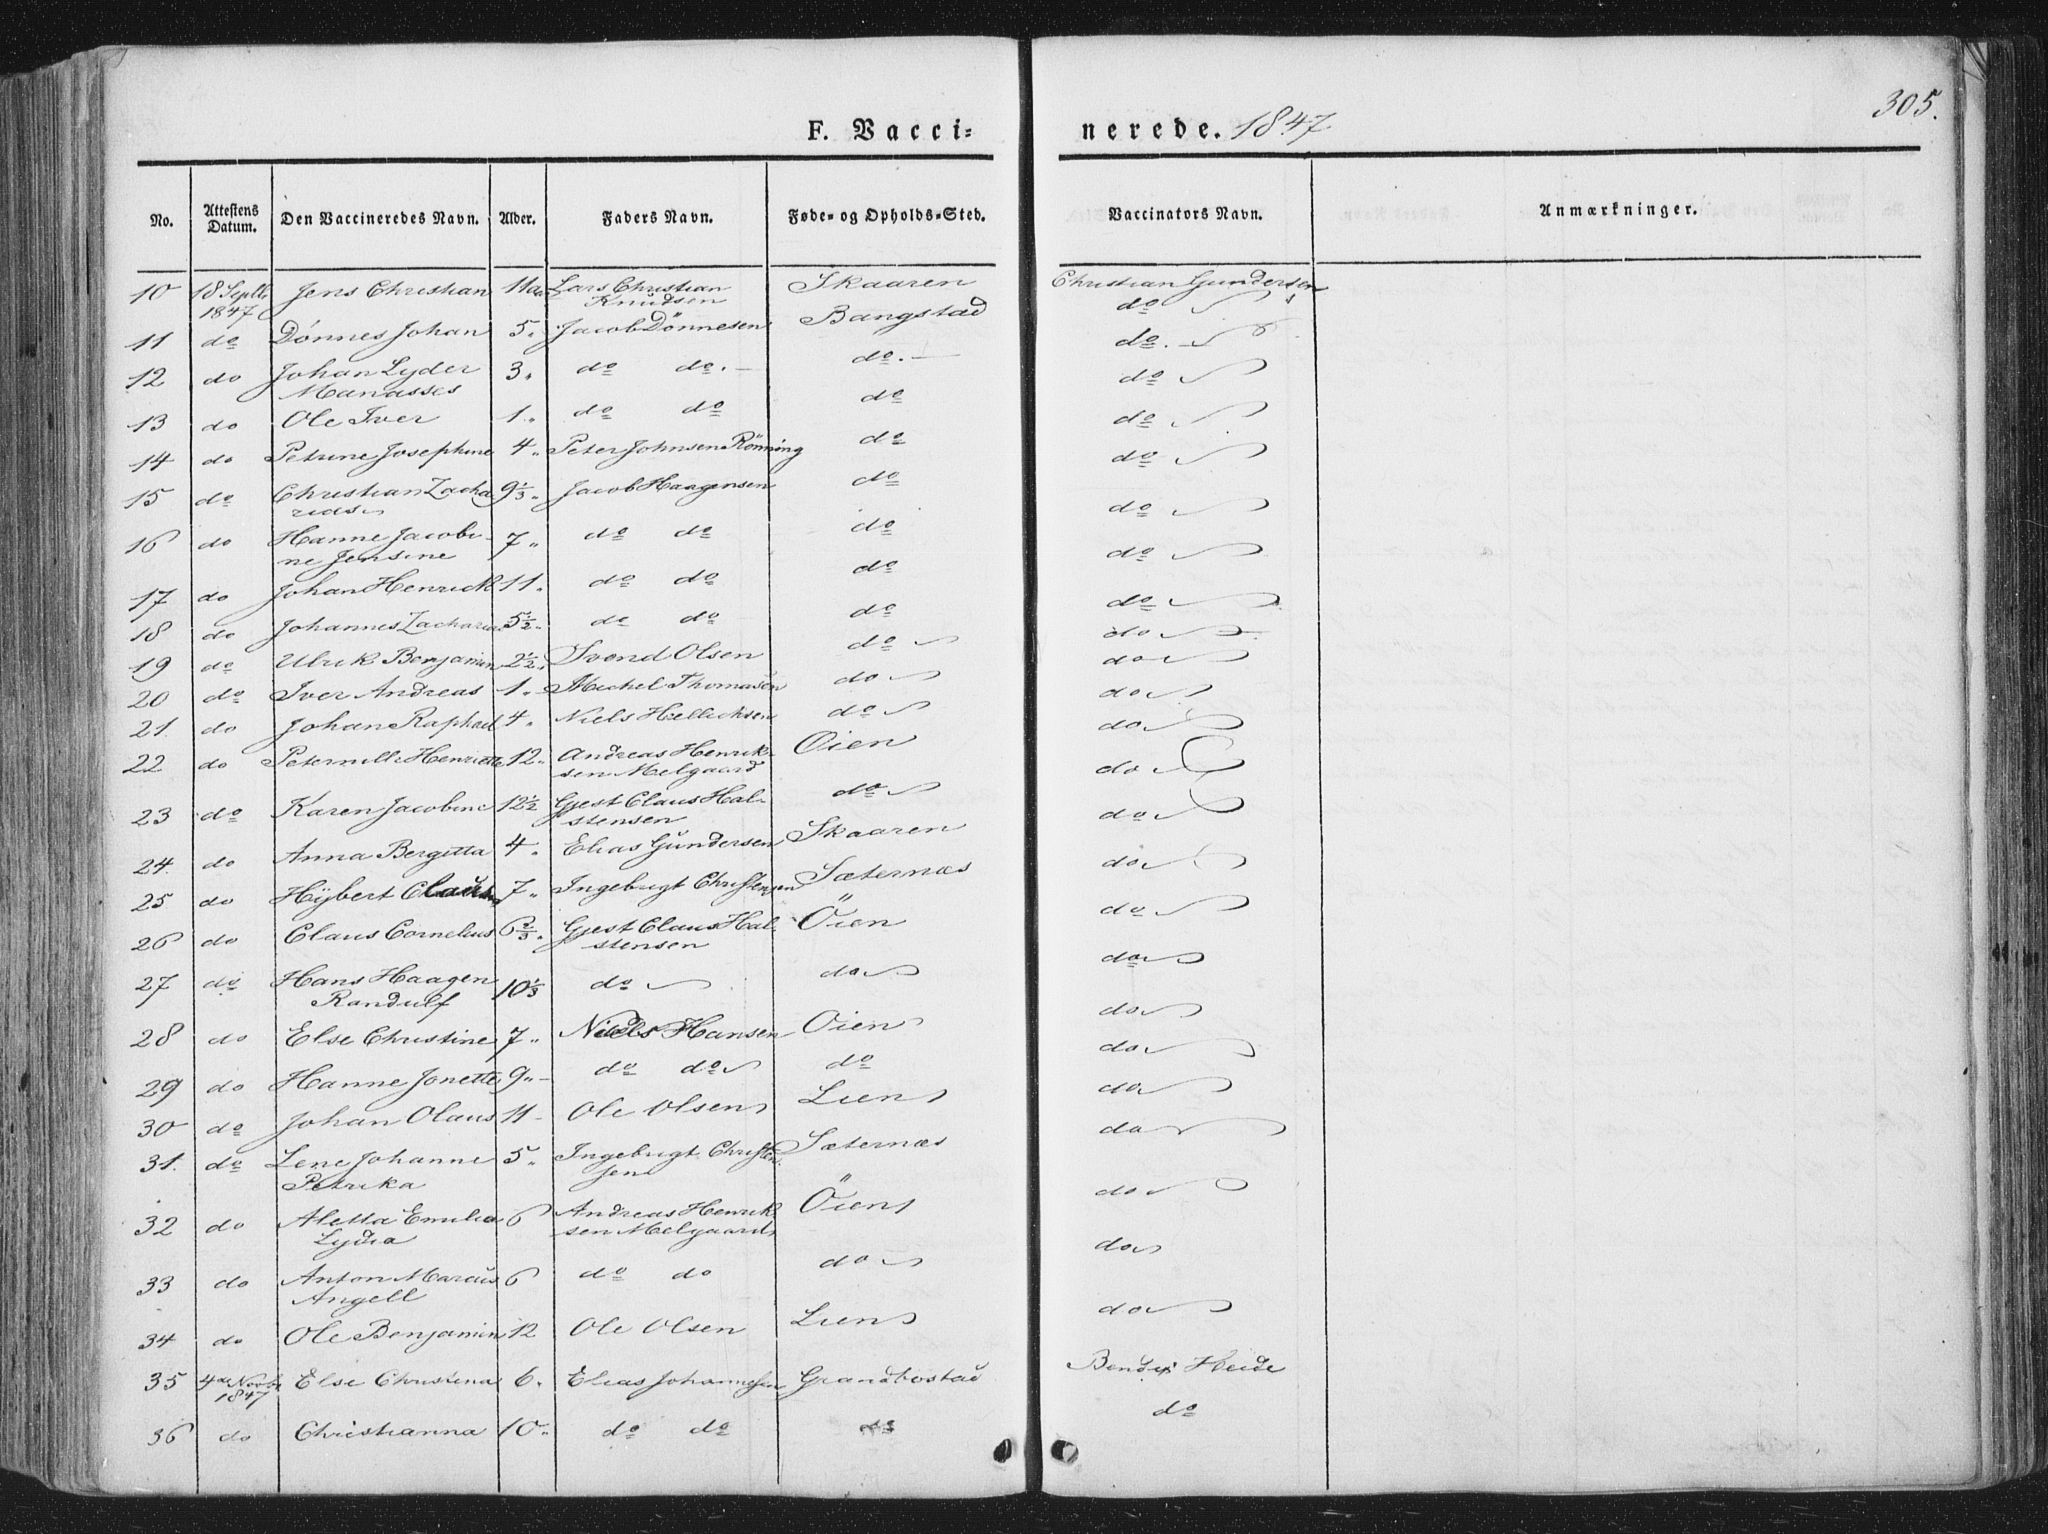 305.
F. Vaccinerede. 1847
No. Attestens Datum. Den Vaccineredes Navn. Alder. Faders Navn. Føde- og Opholds-Sted. Vaccinators Navn. Anmærkninger.
10 18 Septb. 1847 Jens Christian 11 Lars Christian Knudsen Skaaren Christian Gundersen
do
11 do Dønnes Johan 5 Jacob Dönnesen Bangstad do.
12 do Johan Lyder Manasses 3 do do. do. do
13 do Ole Iver 1 do do do do
14 do Petrine Josephine 4 Peter Johnsen Rönning do do
15 do Christian Zacharias 9 1/3 Jacob Haagensen do do
16 do Hanne Jacobine Jensine 7 do do do do
17 do Johan Henrick 11 do do do do
18 do Johannes Zacharias 5 1/2 do do do do
19 do Ulrik Benjamin 2 1/2 Svend Olsen do do
20 do Iver Andreas 1 Michel Thomasen do do
21. do Johan Raphael 4 Niels Hellichsen do do
22 do Peternille Henriette 12 Andreas Henriksen Melgaard Oien do
23 do Karen Jacobine 12 1/2 Gjest Claus Halstensen do do
24. do Anna Bergitta 4 Elias Gundersen Skaaren do
25 do Hÿbert Claus 7 Ingebrigt Christensen Sæternæs do
26 do Claus Cornelius 6 2/3 Gjest Claus Halstensen Öien do
27 do Hans Haagen Randulf 10 1/3 do do do
28 do Else Christine 7 Niels Hansen Oien do
29 do Hanne Jonette 9 do do do do
30 do Johan Olaus 11 Ole Olsen Lien do
31. do Lene Johanne Petrika 5 Ingebrigt Christensen Sæternæs do
32 do Aletta Emilie Lydia 6 Andreas Henriksen Melgaard Öien do
33 do Anton Marcus Angell 6 do do do do
34 do Ole Benjamin 12 Ole Olsen Lien do
35 4de Novbr 1847 Else Christina 6 Elias Johannesen Grandbostad Bendix Heide
36 do Christianna 10 do do do do